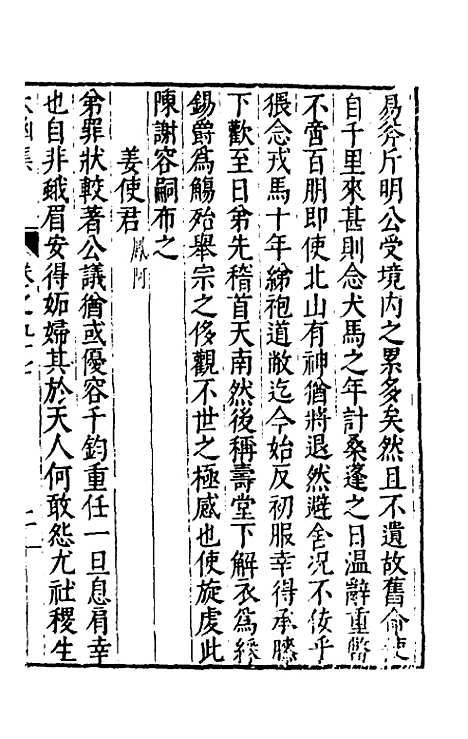 易斧斤明公受境內之累多矣然且不遺故舊俞使
自千里來甚則念犬馬之年計桑蓬之日溫辭重幣
不啻百朋即使北山有神猶將退然避舍況不佞乎
猥念戎馬十年綈袍道敝迄今始反初服幸得承勝
下歡至日弟先稽首天南然後稱壽堂下解衣為綵
錫爵為觴殆舉宗之侈觀不世之極感也使旋虔此
陳謝容嗣布之
姜使君鳳阿
弟罪狀較著公議猶或優容千鈞重任一旦息肩幸
也自非蛾眉安得妬婦其於天人何敢怨尤社稷生
太函集
卷之九十七